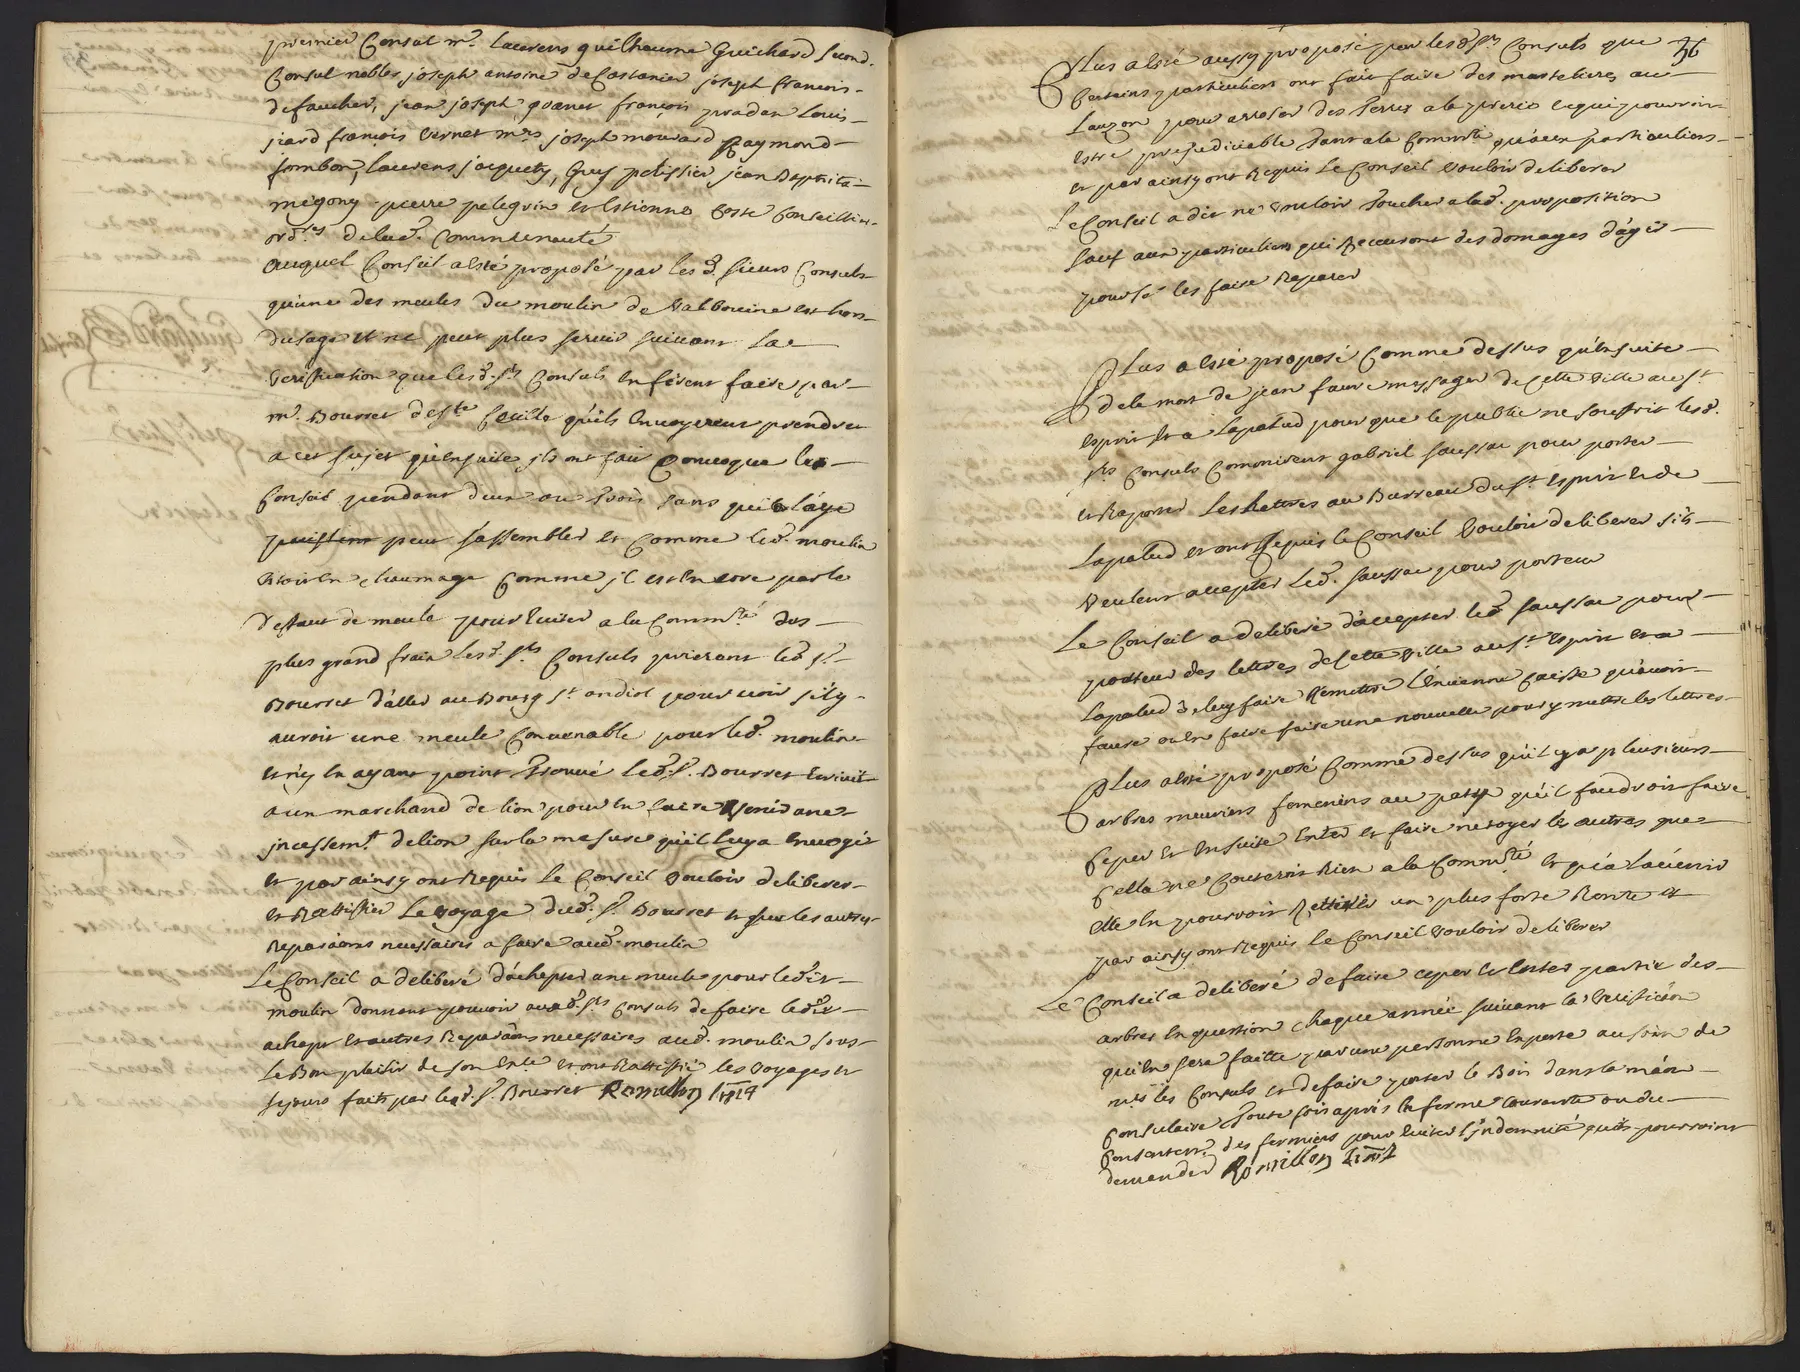 premier Consul mr. Laurens guilheaume Guichard second.
Consul nobles joseph antoine de Castanier joseph francois
de faucher, jean joseph granet françois pradon Louis
jiard françois Vernet mrs joseph mourard Raymond
sombon, laurens jacquety, Guy pelissier jean Baptista
mégony pierre pelegrin et Estienne Coste Conseillers
ordres. de lad. Communauté
Auquel Conseil a esté proposé par les d. sieurs Consuls
qu'une des meules du moulin de Valbonne est hors
d'usage et ne peut plus servir suivant La
Veriffication que lesd. srs Consuls en firent faire par
mr. Bourret de ste Cecille qu'ils Envoyerent prendre
a cet sujet qu'ensuite ils ont fait Convoquer le
Conseil pendant deux ou trois sans qu'il aye
puissent peut s'assembler et Comme led. moulin
etoit en chaumage Comme jl est encore par le
deffaut de meule pour Eviter a la Commté des
plus grand frais lesd. srs Consuls prierent led sr
Bourret d'aller au Bourg st andiol pour voir s'il y
auroit une meule Convenable pour led. moulin
et n'y en ayant point trouvé led. sr. Bourret Ecrivit
a un marchand de lion pour en faire venir une
jncessemt de lion sur la mesure qu'il luy a Envoyé
et par ainsy ont Requis le Conseil Vouloir deliberer
et Rattiffier Le voyage dud. sr. Bourret et sur les autres
Reparaons necessaires a faire aud. moulin
Le Conseil a deliberé d'achepter une meule pour ledit
moulin donnant pouvoir auxd. srs Consuls de faire ledit
achept et autres Reparaons necessaires aud. moulin sous
Le Bon plaisir de son Ence et ont Rattiffié les voyages et
sejours faits par led. sr. Bourret Romillon
56
Plus a esté aussy proposé par lesd. srs Consuls que
Certains particuliers ont fait faire des martelieres au
Lauzon pour arroser des terres a la prerie ce qui pourroit
estre prejudiciable tant a la Commté qu'aux particuliers
et par ainsy ont Requis Le Conseil Vouloir deliberer
Le Conseil a dit ne vouloir Toucher a lad. proposition
sauf aux particuliers qui Recevront des domages d'agir
pour se les faire Reparer
Plus a esté proposé Comme dessus qu'ensuite
de la mort de jean faure messager de Cette ville au st
esprit et a Lapalud pour que le public ne souffrit lesd.
srs Consuls Comonirent gabriel saussac pour porter
et Raporter Les Lettres au Burreau du st Esprit et de
Lapalud et ont Requis le Conseil Vouloir deliberer s'ils
Veulent accepter led. saussac pour porteur
Le Conseil a deliberé d'accepter led saussac pour
porteur des lettres de Cette Ville au st Esprit et a
Lapalud & luy faire Remettre l'encienne Caisse qu'avoit
faure ou en faire faire une nouvelle pour y mettre les lettres
Plus a esté proposé Comme dessus qu'il y a plusieurs
arbres meuriers au qu'il faudroit faire
Ceper et Ensuite Enter et faire netoyer les autres que
Cella ne Couteroit Rien a la Commté et qu'a l'advenir
Elle en pourroit Rettirer un plus forte Rente et
par ainsy ont Requis le Conseil Vouloir deliberer
Le Conseil a deliberé de faire ceper et enter partie des
arbres en question chaque année suivant la Veriffication
qu'en sera faitte par une personne Experte au soin de
mrs les Consuls et de faire porter le Bois dans la maon
Consulaire Toute fois apres la ferme courante ou du
Consentemt des fermiers pour Eviter l'jndemnité qu'ils pourroient
demander Romillon